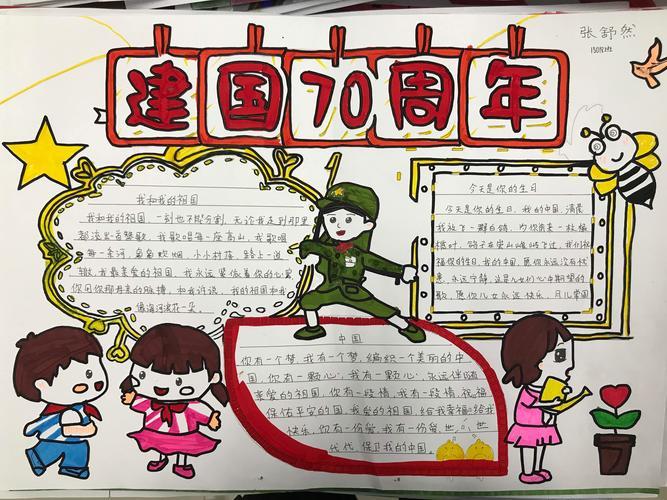 建国70周年
张舒然
我和我的祖国
我和我的祖国,一刻也不能分割,无论我走到那里
都流出一首赞歌,我歌唱每一座高山,我歌唱
每一条河,袅袅炊烟,小小村落,路上一道
辙,我最亲爱的祖国,我永远紧依着你的心窝
你用你那母亲的脉搏,和我诉说,我的祖国和我
像海河浪花一朵
今天是你的生日
今天是你的生日,我的中国,清晨
我放飞一群白鸽,为你衔来一枚橄
榄叶,鸽子在崇山峻岭飞过,我们祝
福你的生日,我的中国,愿你永远没有忧
患,永远宁静,这是儿女们心中期望的
歌,愿你儿女永远快乐,月儿常圆
中国
你有一个梦,我有一个梦,编织一个美丽的中
国,你有一颗心,我有一颗心,永远伴随
亲爱的祖国,你有一段情,我有一段情,祝福
保佑平安的国,我爱的祖国,给我幸福,给我
快乐,你有一份爱,我有一份爱,世世
代代,保卫我的中国。